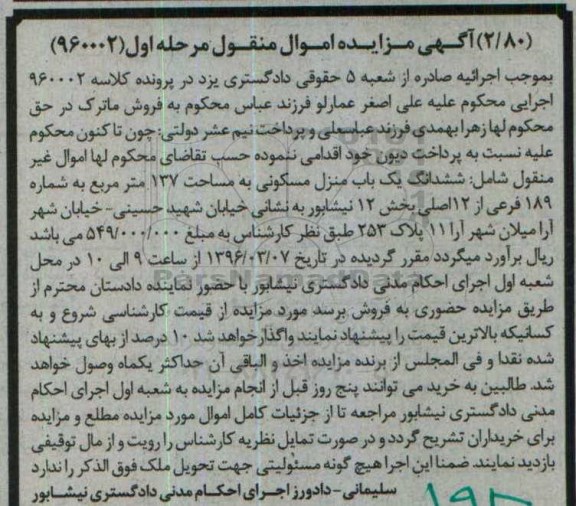 (۲/۸۰) آگهی مزایده اموال منقول مرحله اول (۹۶۰۰۰۲)
بموجب اجرائیه صادره از شعبه ۵ حقوقی دادگستری یزد در پرونده کلاسه ۹۶۰۰۰۲
اجرایی محکوم علیه علی اصغر عمارلو فرزند عباس محکوم به فروش ماترک در حق
محکوم لها زهرا بهمدی فرزند عباسعلی و پرداخت نیم عشر دولتی: چون تا کنون محکوم
علیه نسبت به پرداخت دیون خود اقدامی ننموده حسب تقاضای محکوم لها اموال غیر
منقول شامل: ششدانگ یک باب منزل مسکونی به مساحت ۱۳۷ متر مربع به شماره
۱۸۹ فرعی از ۱۲ اصلی بخش ۱۲ نیشابور به نشانی خیابان شهید حسینی - خیابان شهر
آرا میلان شهر آرا ۱۱ پلاک ۲۵۳ طبق نظر کارشناس به مبلغ ۵۴۹/۰۰۰/۰۰۰ می باشد
ریال برآورد میگردد مقرر گردیده در تاریخ ۱۳۹۶/۰۳/۰۷ از ساعت ۹ الی ۱۰ در محل
شعبه اول اجرای احکام مدنی دادگستری نیشابور با حضور نماینده دادستان محترم از
طریق مزایده حضوری به فروش برسد مورد مزایده از قیمت کارشناسی شروع و به
کسانیکه بالاترین قیمت را پیشنهاد نمایند واگذار خواهد شد ۱۰ درصد از بهای پیشنهاد
شده نقدا و فی المجلس از برنده مزایده اخذ و الباقی آن حداکثر یکماه وصول خواهد
شد. طالبین به خرید می توانند پنج روز قبل از انجام مزایده به شعبه اول اجرای احکام
مدنی دادگستری نیشابور مراجعه تا از جزئیات کامل اموال مورد مزایده مطلع و مزایده
برای خریداران تشریح گردد و در صورت تمایل نظریه کارشناس را رویت و از مال توقیفی
بازدید نمایند. ضمنا این اجرا هیچ گونه مسئولیتی جهت تحویل ملک فوق الذکر را ندارد
سلیمانی - دادورز اجرای احکام مدنی دادگستری نیشابور